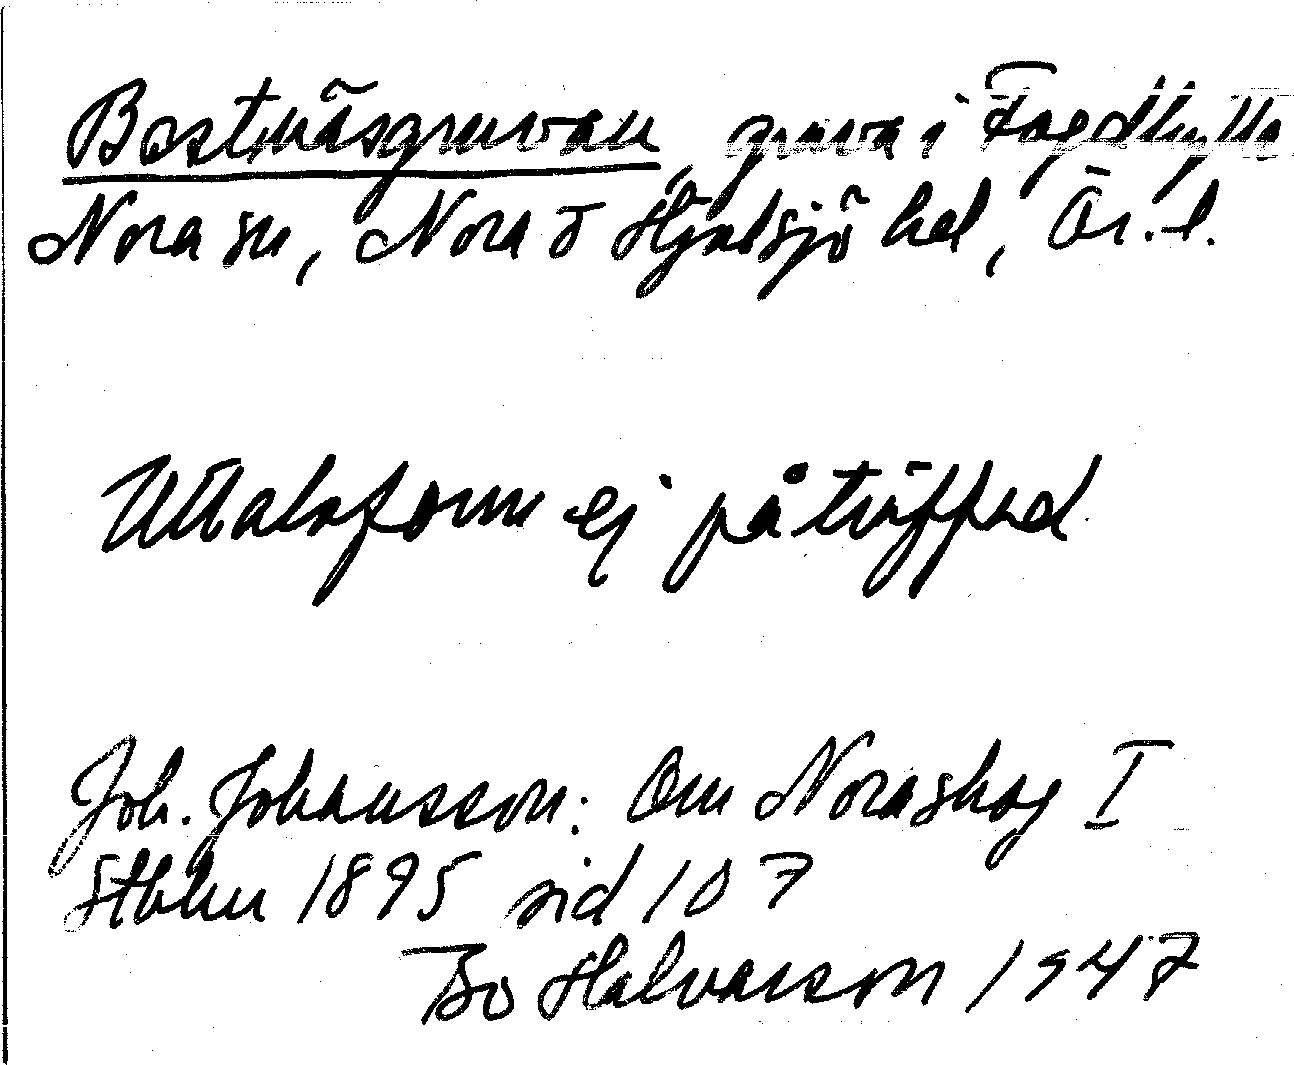 Bastnäsgruvan, gruva i Fogdhyttan
Nora sn, Nora o Hjulsjö hd, Ör. l.
Uttalsform ej påträffad
Joh. Johansson: Om Noraskog I
Sthlm 1895 sid 107
Bo Halvarson 1947